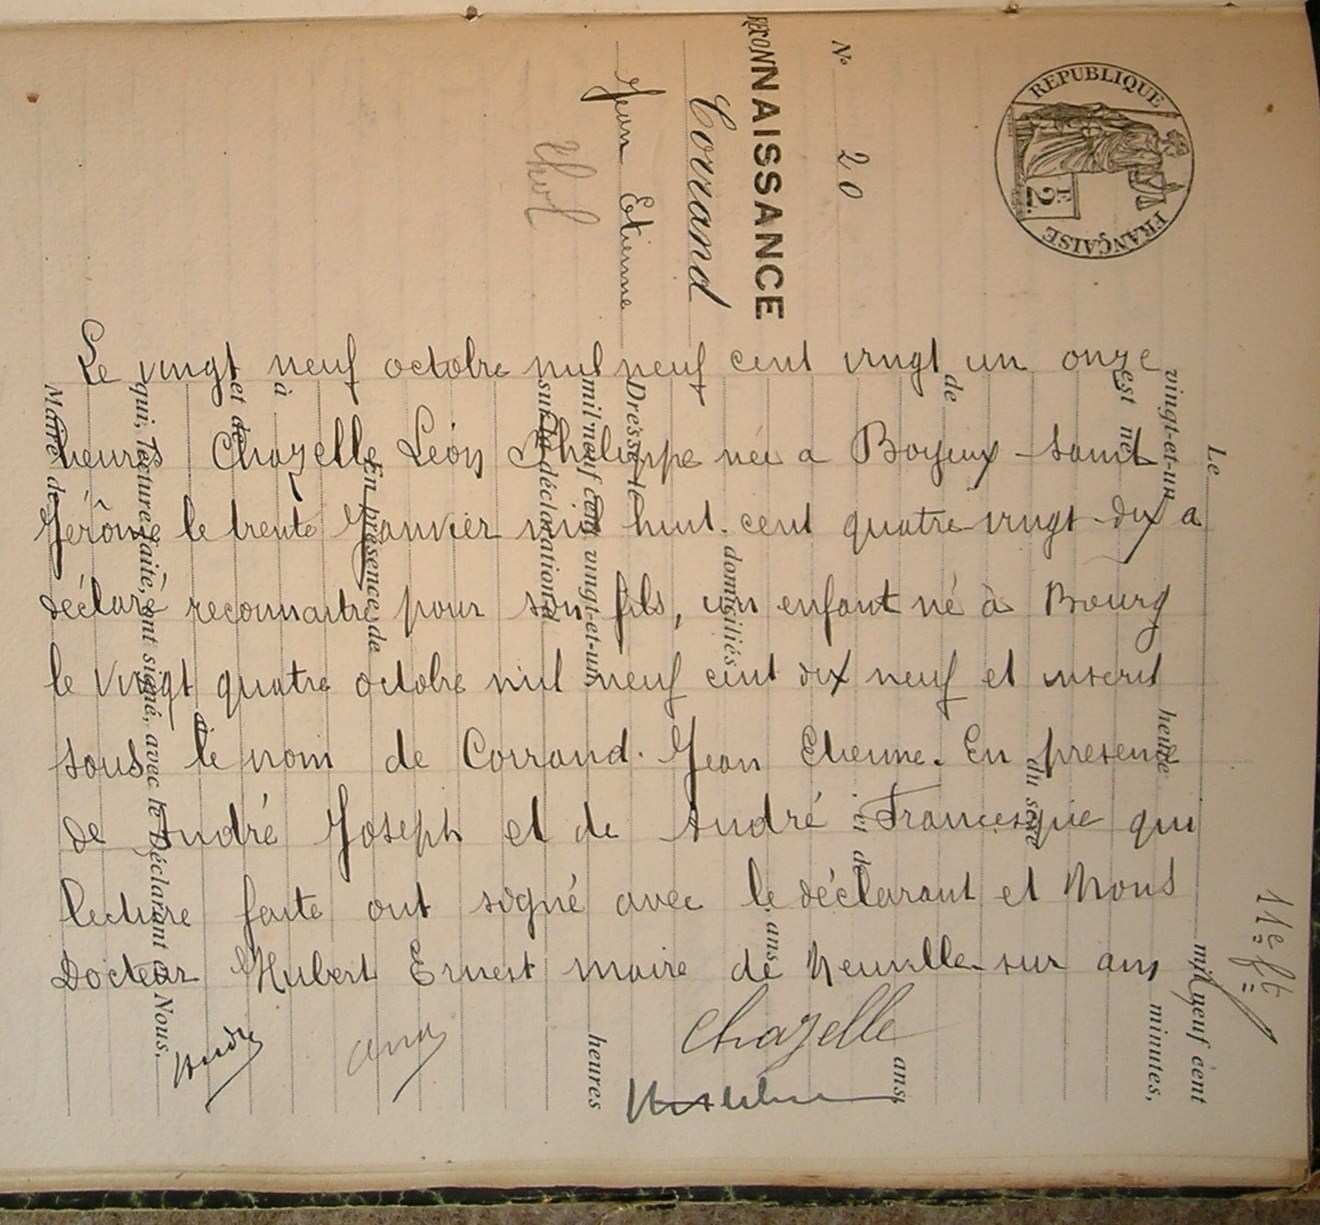 RÉPUBLIQUE FRANÇAISE
2. F
N° 20
RECONNAISSANCE
Corrand
Jean Etienne
Le vingt neuf octobre mil neuf cent vingt un onze
heures Chazelle Léon Philippe née a Boyeux-saint
Jérôme le trente Janvier mil huit cent quatre vingt dix a
déclaré reconnaitre pour son fils, un enfant né à Bourg
le vingt quatre octobre mil neuf cent dix neuf et inscrit
sous le nom de Corrand. Jean Etienne. En presence
de André Joseph et de André Francisque qui
lecture faite ont signé avec le déclarant et Nous
Docteur Hubert Ernest maire de Neuville sur ain
André
Chazelle
Le mil neuf cent
vingt-et-un heure minutes,
est né
du soir
de
et de
ans,
ans,
domiciliés
Dressé le
mil neuf cent vingt-et-un heures
sur la déclaration d
En présence de
à
et de
qui, lecture faite, ont signé, avec le Déclarant et Nous,
Maire de